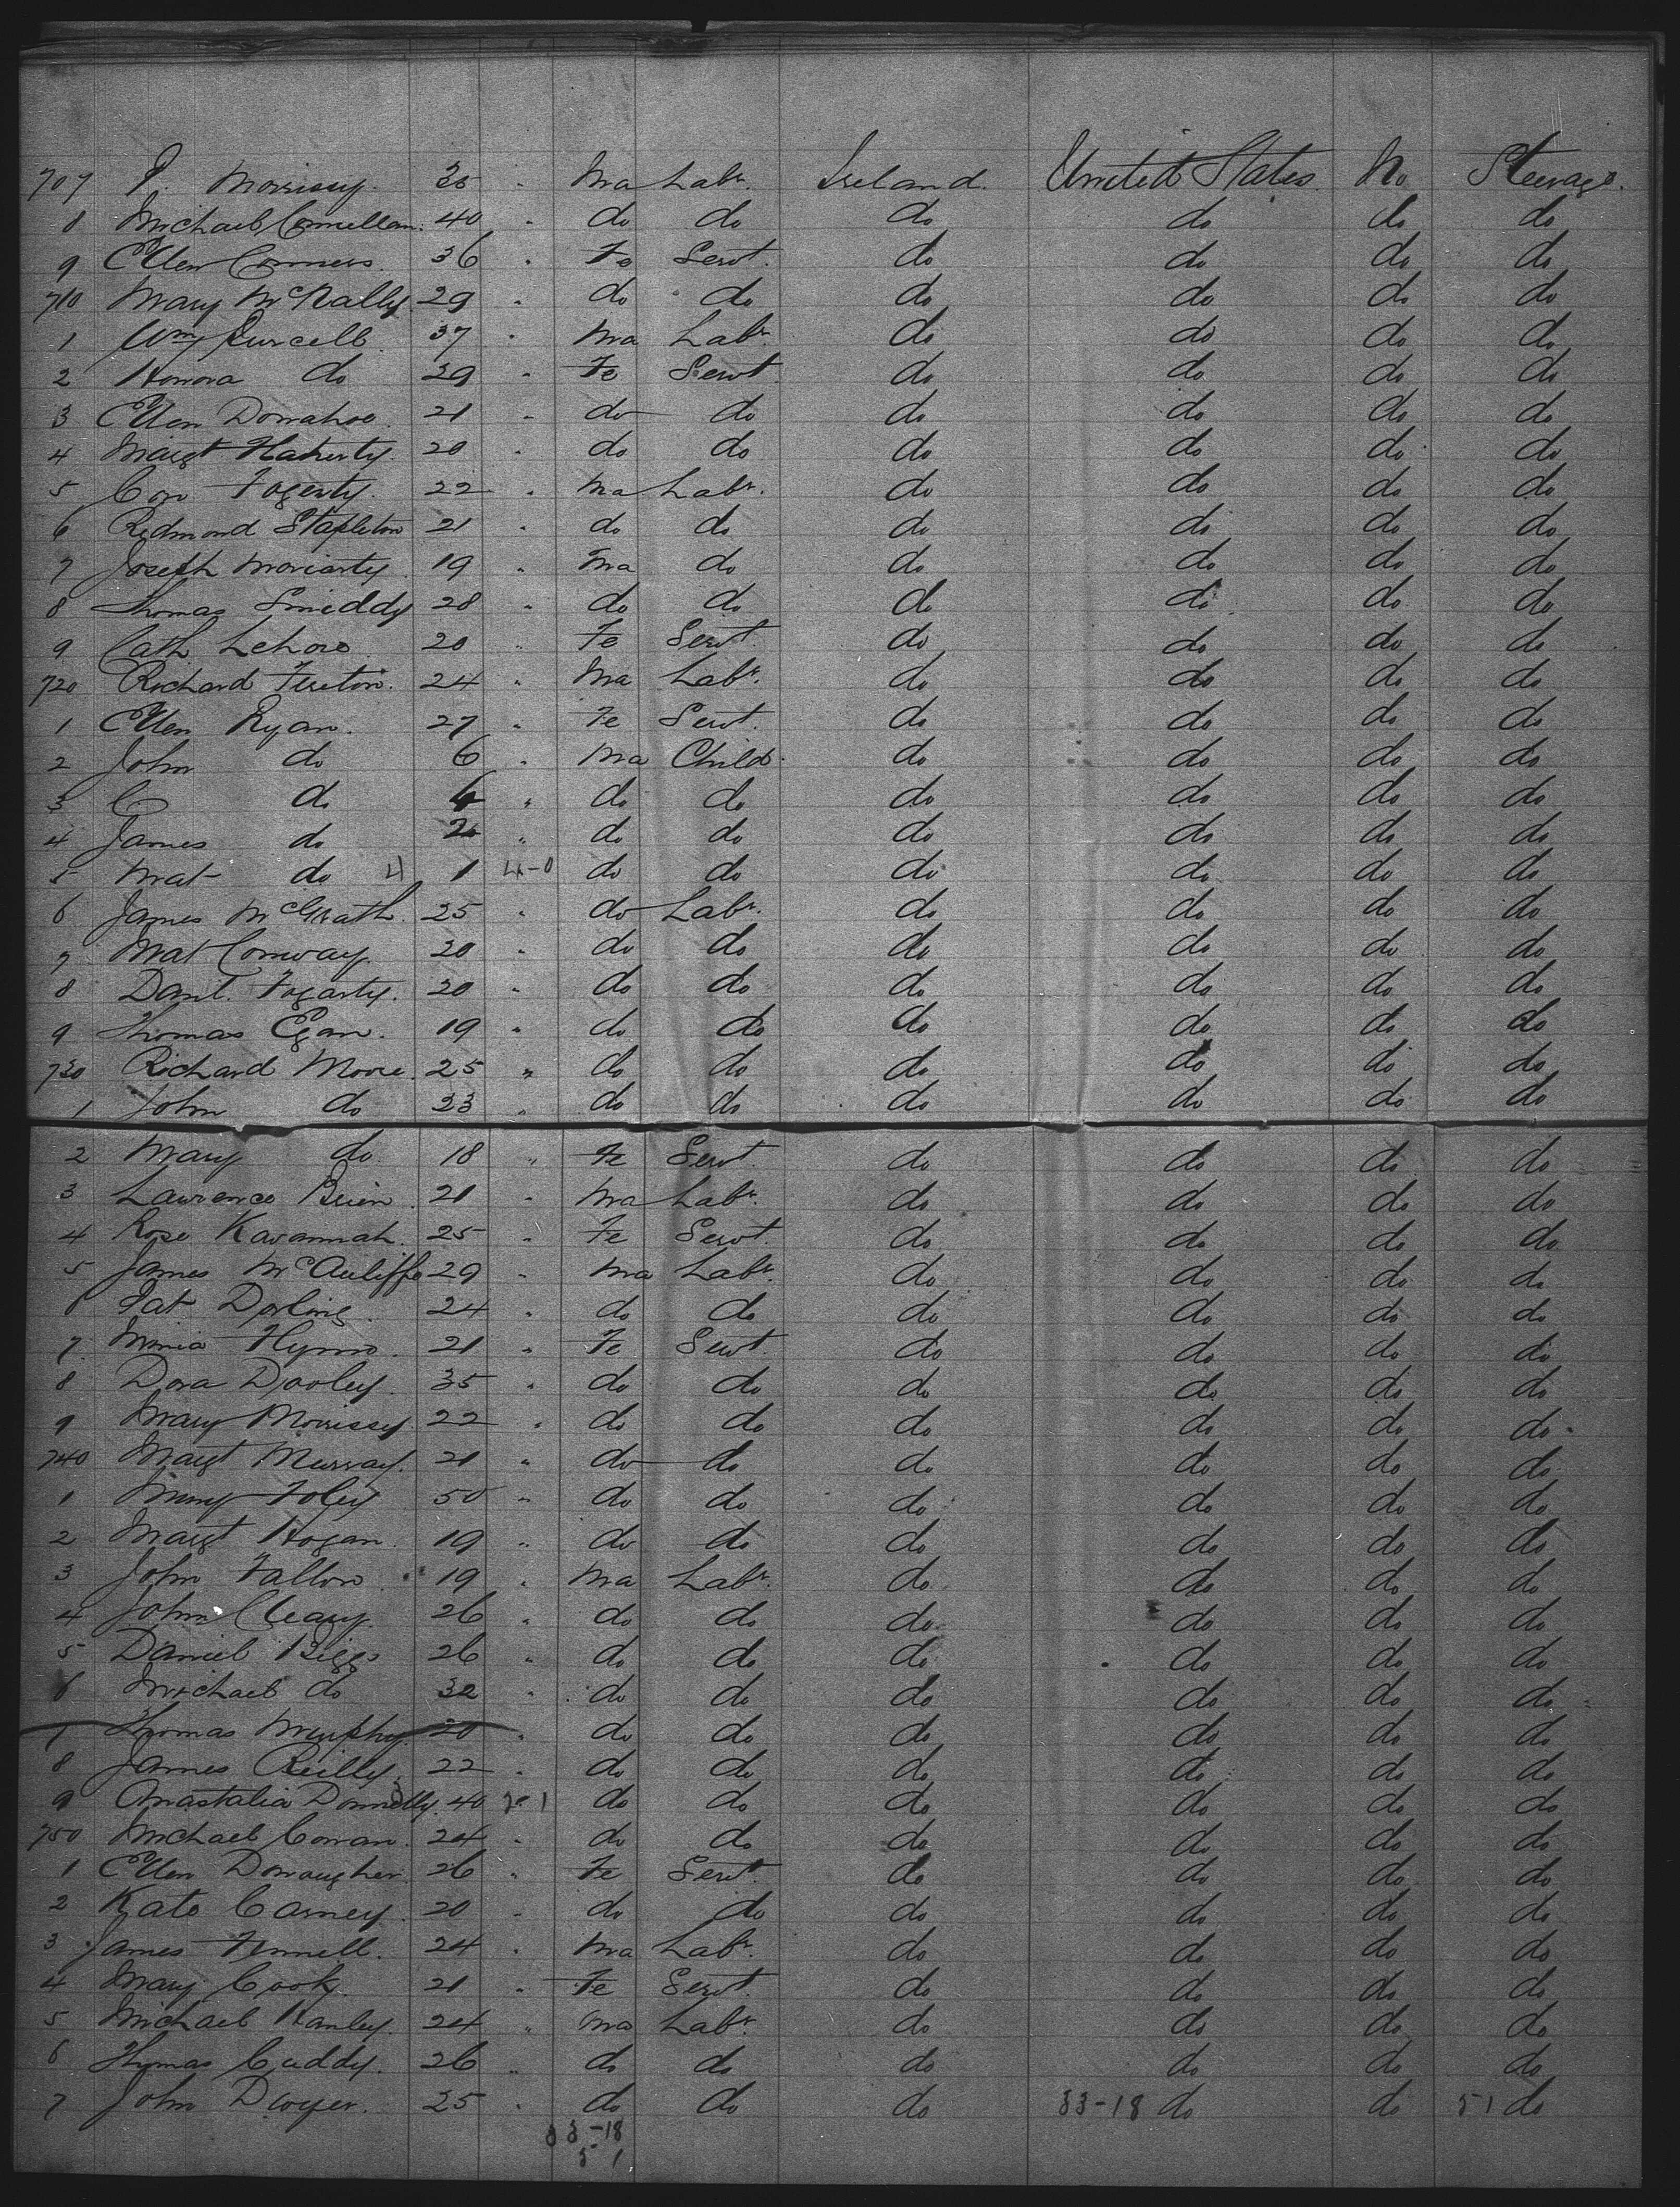 707 P. Morrissy. 35 " Ma Labr. Ireland. United States. No Steerage.
8 Michael Connellan. 40 " do do do do do do
9 Ellen Conners. 36 " Fe Servt. do do do do
710 Mary McNally. 29 " do do do do do do
1 Wm Purcell 37 " Ma Labr. do do do do
2 Honora do 29 " Fe Servt do do do do
3 Ellen Donahoe. 21 " do do do do do do
4 Margt Flaherty. 20 " do do do do do do
5 Con Fogerty. 22 " Ma Labr. do do do do
6 Redmond Stapleton 21 " do do do do do do
7 Joseph Moriarty 19 " Ma do do do do do
8 Thomas Smiddy 28 " do do do do do do
9 Cath Lehove 20 " Fe Servt. do do do do
720 Richard 24 " Ma Labr. do do do do
1 Ellen Ryan. 27 " Fe Servt. do do do do
2 John do 6 " Ma Child do do do do
3 C do 4 " do do do do do do
4 James do 2 " do do do do do do
5 Mat do 4 1 4-0 do do do do do do
6 James McGrath. 25 " do Labr. do do do do
7 Mat Conway. 20 " do do do do do do
8 Danl. Fogarty. 20 " do do do do do do
9 Thomas Egan. 19 " do do do do do do
730 Richard Moore. 25 " do do do do do do
1 John do 23 " do do do do do do
2 Mary do 18 " Fe Servt. do do do do
3 Lawrence Brien. 21 " Ma Labr. do do do do
4 Rose Kavannah. 25 " Fe Servt. do do do do
5 James McAuliffe 29 " Ma Labr. do do do do
6 Pat Dorling 24 " do do do do do do
7 21 " Fe Servt. do do do do
8 Dora Dooley. 35 " do do do do do do
9 Mary Morrissy. 22 " do do do do do do
740 Margt Murray. 21 " do do do do do do
1 Foley 50 " do do do do do do
2 Margt Hogan. 19 " do do do do do do
3 John Fallon. 19 " Ma Labr. do do do do
4 John Cleary. 26 " do do do do do do
5 Daniel Biggs 26 " do do do do do do
6 Michael do 32 " do do do do do do
7 Thomas Murphy. 20 " do do do do do do
8 James Reilly. 22 " do do do do do do
9 Anastatia Donnelly. 40 1 do do do do do do
750 Michael Conran. 24 " do do do do do do
1 Ellen Donaugher. 26 " Fe Servt. do do do do
2 Kate Carney. 20 " do do do do do do
3 James Fennell. 24 " Ma Labr. do do do do
4 Mary Cook. 21 " Fe Servt. do do do do
5 Michael Hanley. 24 " Ma Labr. do do do do
6 Thomas Cuddy. 26 " do do do do do do
7 John Dwyer. 25 " do do do 33-18 do do 51 do
33-18
51